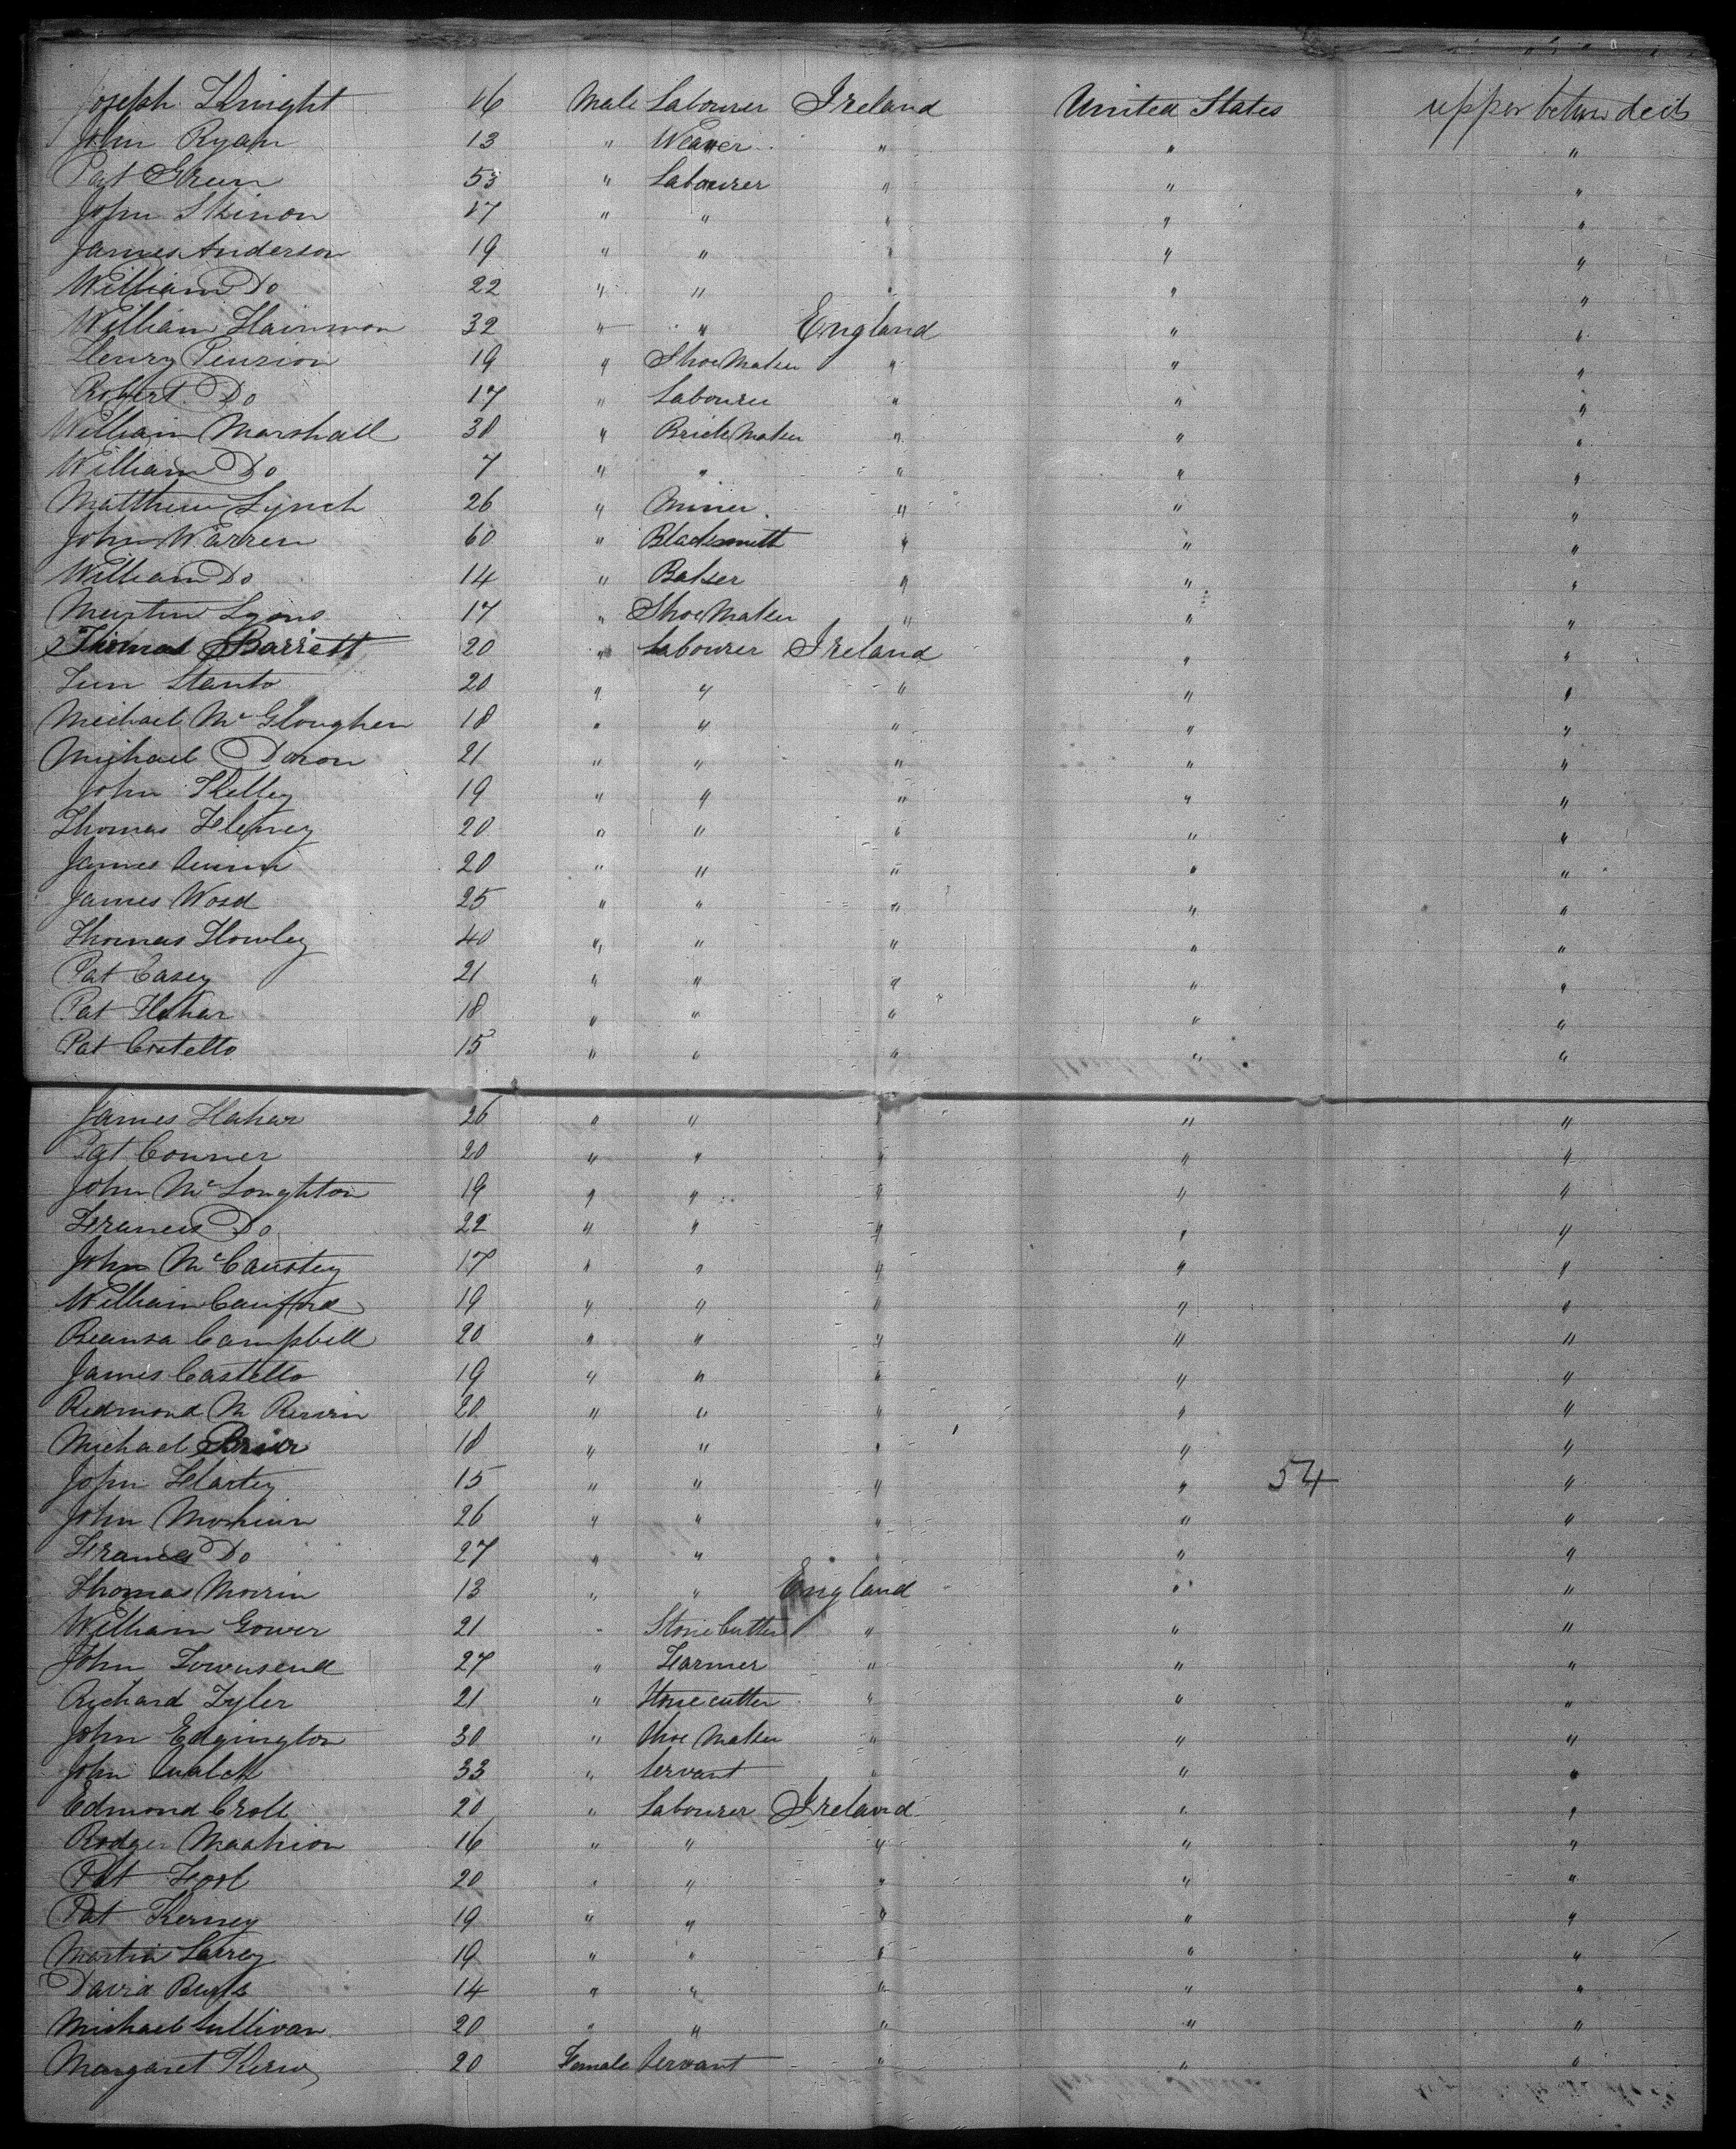 Joseph Knight 16 Male Labourer Ireland United States upper between decks
John Ryan 13 " Weaver " " "
Pat Green 53 " Labourer " " "
John Skinon 17 " " " " "
James Anderson 19 " " " " "
William Do 22 " " " " "
William Hainmon 32 " " England " "
Henry Penrion 19 " Shoe Maker " " "
Robert Do 17 " Labourer " " "
William Marshall 38 " Brick Maker " " "
William Do 7 " " " " "
Matthew Lynch 26 " Miner " " "
John Warren 60 " Blacksmith " " "
William Do 14 " Baker " " "
Martin Lyons 17 " Shoe Maker " " "
Thomas Barrett 20 " Labourer Ireland " "
Stanto 20 " " " " "
Michael Mc Gloughen 18 " " " " "
Michael Doron 21 " " " " "
John Kelley 19 " " " " "
Thomas 20 " " " " "
James Quinn 20 " " " " "
James Word 25 " " " " "
Thomas Howley 40 " " " " "
Pat Casey 21 " " " " "
Pat Hahar 18 " " " " "
Pat Costello 15 " " " " "
James Hahar 26 " " " " "
Pat Conner 20 " " " " "
John Mc Loughton 19 " " " " "
Francis Do 22 " " " " "
John Mc Caustey 17 " " " " "
William Canford 19 " " " " "
Campbell 20 " " " " "
James Castello 19 " " " " "
Redmond M 20 " " " " "
Michael Brier 18 " " " " "
John Hartey 15 " " " " 54 "
John 26 " " " " "
Frances Do 27 " " " " "
Thomas Morrin 13 " " England " "
William Gower 21 " Stone Cutter " " "
John Townsend 27 " Farmer " " "
Richard Tyler 21 " Stone cutter " " "
John Edgington 30 " Shoe Maker " " "
John Walch 33 " Servant " " "
Edmond Croll 20 " Labourer Ireland " "
Rodger Maahion 16 " " " " "
Pat Fool 20 " " " " "
Pat Kerney 19 " " " " "
Martin Larrey 19 " " " " "
David 14 " " " " "
Michael Sullivan 20 " " " " "
Margaret 20 Female Servant " " "